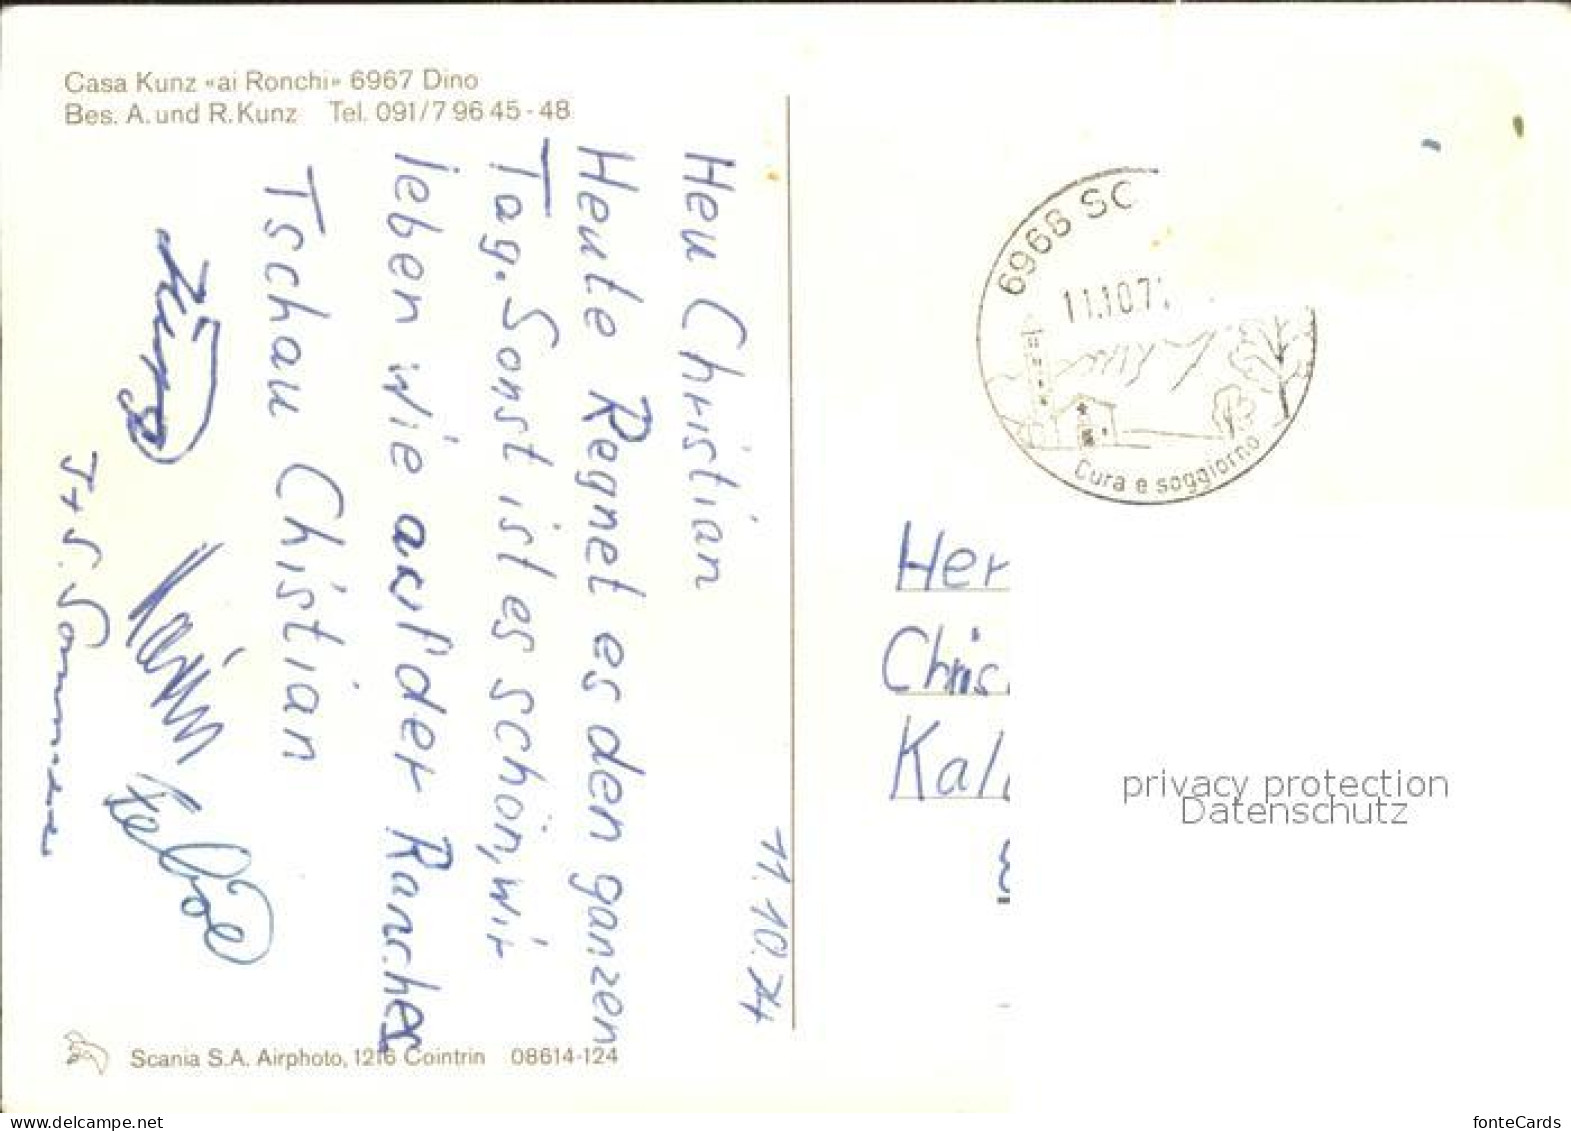 Casa Kunz «ai Ronchi» 6967 Dino
Bes. A. und R. Kunz Tel. 091/7 96 45 - 48
11.10.74
Heu Christian
Heute Regnet es den ganzen
Tag. Sonst ist es schön, wir
leben wie auf der Ranches
Tschau Christian
J + S. Sommerer
Scania S.A. Airphoto, 1216 Cointrin 08614-124
6968 SO
11.10.7
Cura e soggiorno
Her
Chris
Kal
privacy protection
Datenschutz
fonteCards